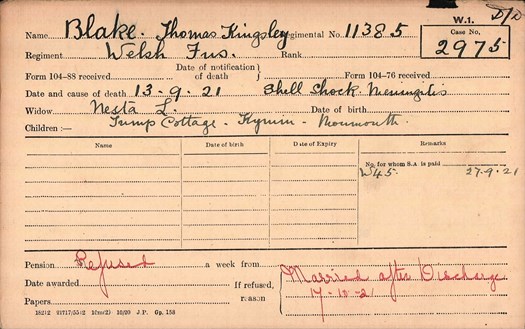 W.1. D/D
Name Blake. Thomas Kingsley Regimental No. 11385 Case No.
Regiment Welsh Fus. Rank 2975
Form 104-88 received Date of notification of death Form 104-76 received
Date and cause of death 13-9-21 Shell Shock. Meningitis
Widow Nesta L. Date of birth
Children :— Tump Cottage - Kymin - Monmouth.
Name Date of birth Date of Expiry Remarks
No. for whom S.A. is paid
W45. 27-9-21
Pension Refused a week from
Date awarded If refused, reason Married after Discharge
Papers 17-12-21
18212 21717/5512 1/m(2) 10/20 J.P. Gp. 158